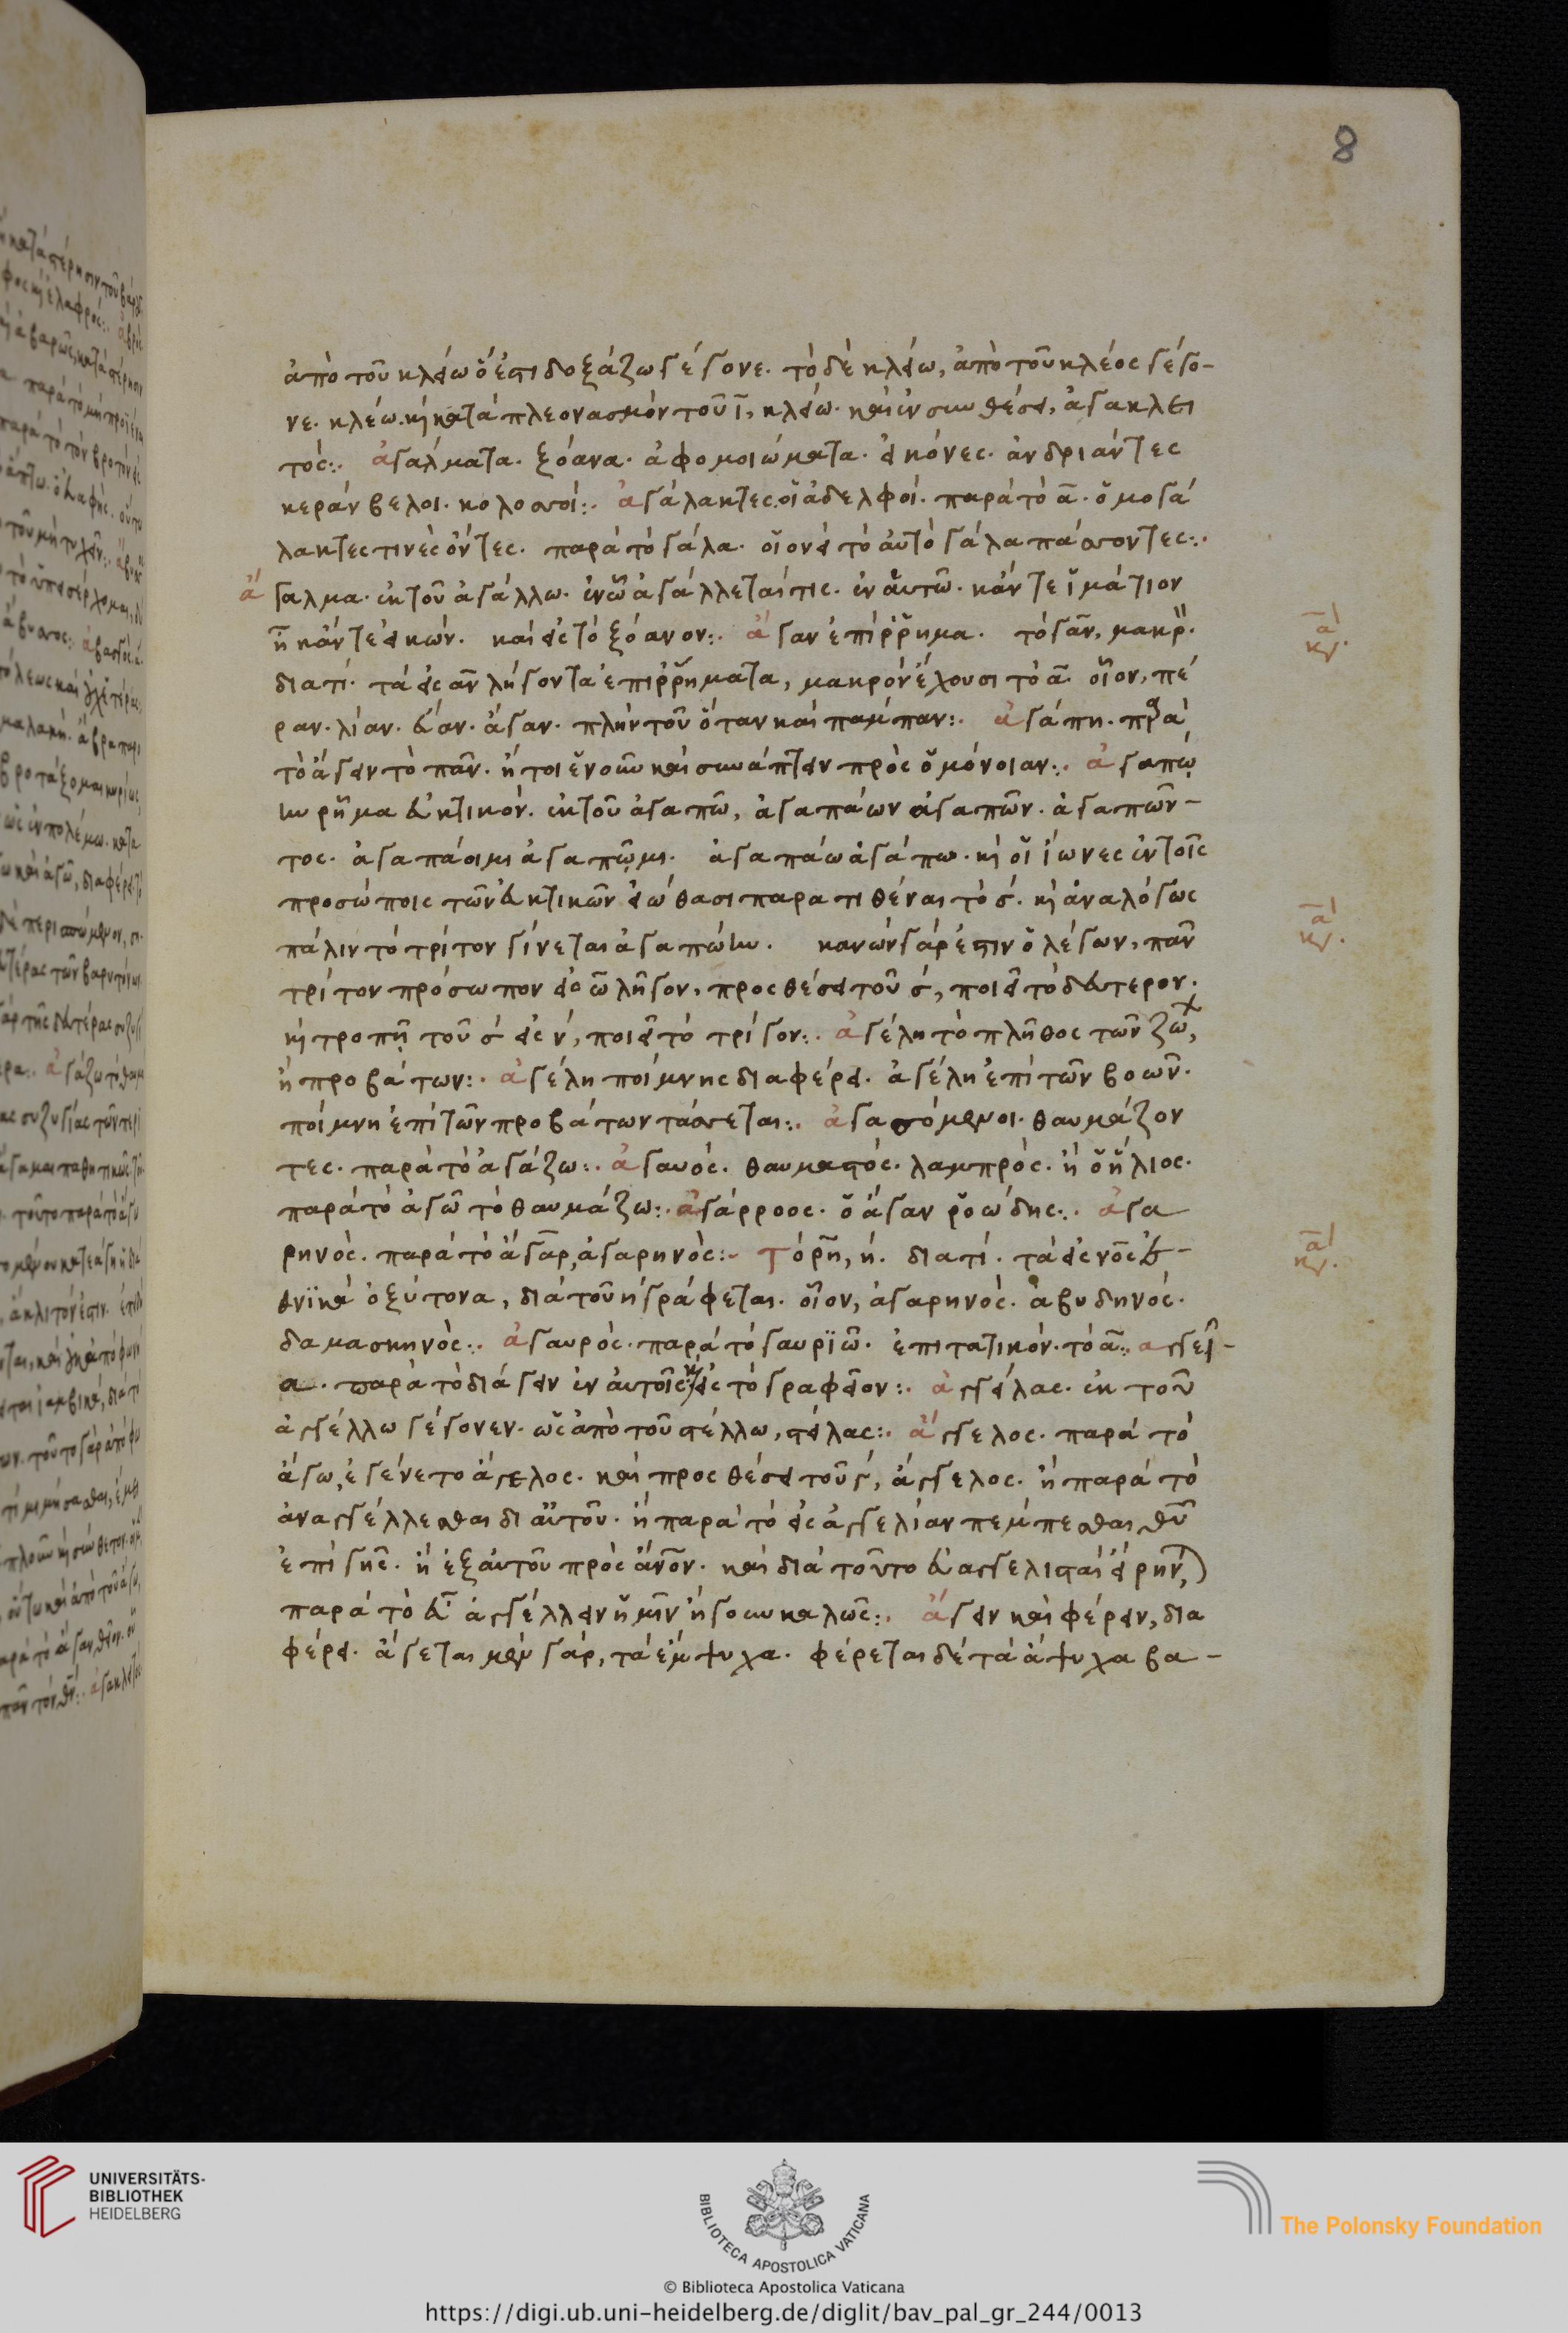 8
ἀπὸ τοῦ κλείω ὅ ἐστι δοξάζω γέγονε. τὸ δὲ κλείω, ἀπὸ τοῦ κλέος γέγο-
νε. κλέω. κỳ κατὰ πλεονασμὸν τοῦ ῑ, κλείω. καὶ ἐν συνθέσει, ἀγακλει
τός:. ἀγάλματα. ξόανα. ἀφομοιώματα. εἰκόνες. ἀνδριάντες
κεράνβελοι. κολοσσοί:. ἀγάλακτες. οἱ ἀδελφοί. παρὰ τὸ ᾱ. ὁμογά
λακτες τινὲς ὄντες. παρὰ τὸ γάλα. οἱονεὶ τὸ αὐτὸ γάλα πάσσοντες:.
ἄγαλμα. ἐκ τοῦ ἀγάλλω. ἐν ᾧ ἀγάλλεταί τις. ἐν αὐτῶ. κἄν τε ἱμάτιον
ἢ κἄν τε εἰκών. καὶ εἰς τὸ ξόανον:. ἄγαν ἐπίρρημα. τὸ γαν, μακρ.
διατί. τὰ εἰς αν λήγοντα ἐπιρρήματα, μακρὸν ἔχουσι τὸ ᾱ. οἷον, πέ
ραν. λίαν. εὐάν. ἄγαν. πλὴν τοῦ ὅταν καὶ πάμπαν:. ἀγάπη. πρα
τὸ ἄγειν τὸ πᾶν. ἤτοι ἑνοῦν καὶ συνάπτειν πρὸς ὁμόνοιαν:. ἀγαπῴ
ην ρῆμα εὐκτικόν. ἐκ τοῦ ἀγαπῶ, ἀγαπάων ἀγαπῶν. ἀγαπῶν-
τος. ἀγαπάοιμι ἀγαπῷμι. ἀγαπάω ἀγάπω. κỳ οἱ ἴωνες ἐν τοῖς
προσώποις τῶν εὐκτικῶν εἰώθασι παρατιθέναι τὸ σ. κỳ ἀναλόγως
πάλιν τὸ τρίτον γίνεται ἀγαπώην. κανὼν γάρ ἐστιν ὁ λέγων, πᾶν
τρίτον πρόσωπον εἰς ω λῆγον, προσθέσει τοῦ σ, ποιεῖ τὸ δεύτερον.
κỳ τροπῇ τοῦ σ εἰς ν, ποιεῖ τὸ τρίτον:. ἀγέλη τὸ πλῆθος τῶν ζώ,
ἢ προβάτων:. ἀγέλη ποίμνης διαφέρει. ἀγέλη ἐπὶ τῶν βοῶν.
ποίμνη ἐπὶ τῶν προβάτων τάσσεται:. ἀγασσόμενοι. θαυμάζον
τες. παρὰ τὸ ἀγάζω:. ἀγαυός. θαυμαστός. λαμπρός. ἢ ὁ ἥλιος.
παρὰ τὸ ἀγῶ τὸ θαυμάζω:. ἀγάρροος. ὁ ἄγαν ροώδης:. ἀγα
ρηνός. παρὰ τὸ ἄγαρ, ἀγαρηνός:. Τὸ ρη, η. διατί. τὰ εἰς νος ἐ-
θνϊκὰ ὀξύτονα, διὰ τοῦ η γράφεται. οἷον, ἀγαρηνός. ἀβυδηνός.
δαμασκηνός:. ἀγαυρός. παρὰ τὸ γαυριῶ. ἐπιτατικόν. τὸ ᾱ:. ἀγγεῖ-
α. παρὰ τὸ διάγειν ἐν αὐτοῖς εἰς τὸ γραφεῖον:. ἀγγείλας. ἐκ τοῦ
ἀγγέλλω γέγονεν. ὡς ἀπὸ τοῦ στέλλω, στείλας:. ἄγγελος. παρὰ τὸ
ἄγω, ἐγένετο ἄγελος. καὶ προσθέσει τοῦ γ, ἄγγελος. ἢ παρὰ τὸ
ἀναγγέλλεσθαι δι αὐτοῦ. ἢ παρὰ τὸ εἰς ἀγγελίαν πέμπεσθαι θυ
ἐπὶ γῆς. ἢ ἐξ αὐτοῦ πρὸς ἄνον. καὶ διὰ τοῦτο εὐαγγελισταὶ εἴρην,
παρὰ τὸ εὖ ἀγγέλλειν ἡμῖν ἤγουν καλῶς:. ἄγειν καὶ φέρειν, δια
φέρει. ἄγεται μὲν γάρ, τὰ ἔμψυχα. φέρεται δὲ τὰ ἄψυχα βα-
UNIVERSITÄTS-
BIBLIOTHEK
HEIDELBERG
BIBLIOTECA APOSTOLICA VATICANA
The Polonsky Foundation
© Biblioteca Apostolica Vaticana
https://digi.ub.uni-heidelberg.de/diglit/bav_pal_gr_244/0013